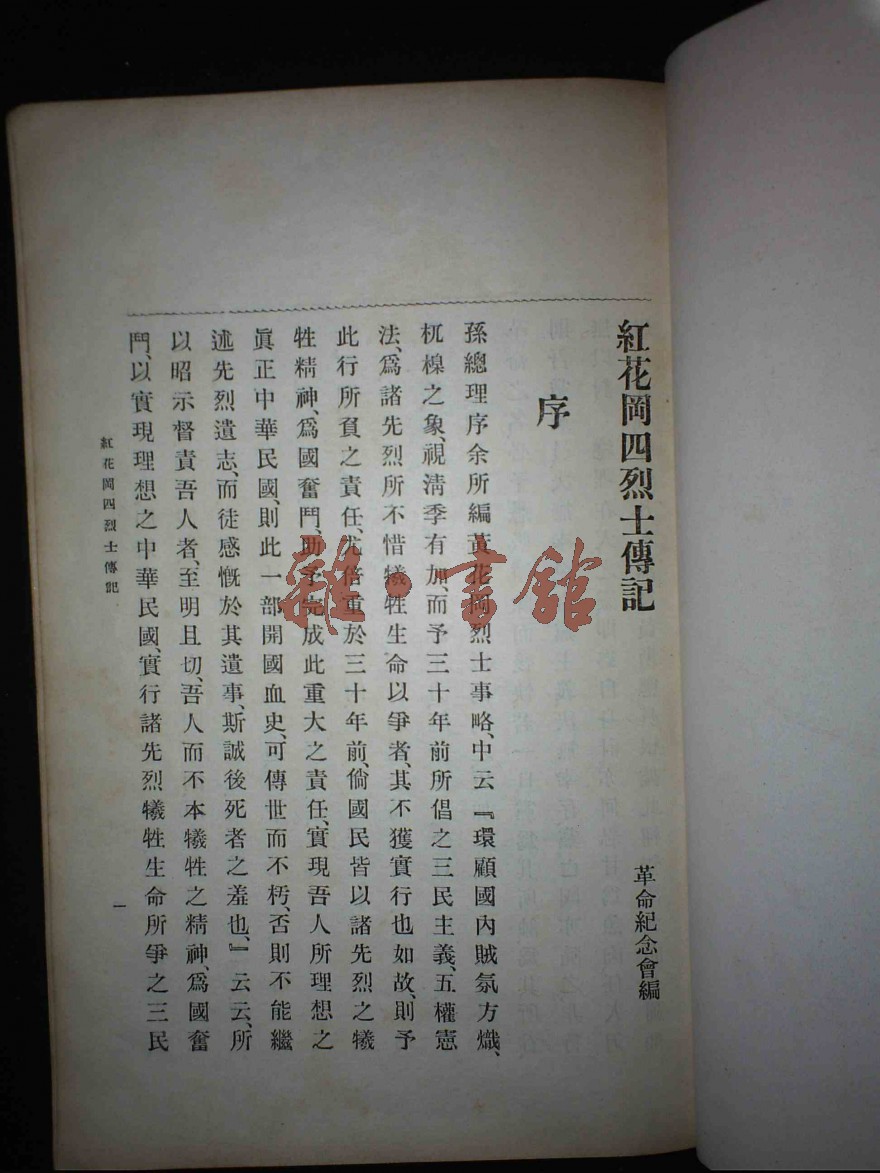 紅花岡四烈士傳記
革命紀念會編
序
孫總理序余所編黃花岡烈士事略、中云『環顧國內賊氛方熾、
杌橰之象、視淸季有加、而予三十年前所倡之三民主義、五權憲
法、爲諸先烈所不惜犧牲生命以爭者、其不獲實行也如故、則予
此行所負之責任、尤倍重於三十年前、倘國民皆以諸先烈之犧
牲精神、爲國奮鬥、助予完成此重大之責任、實現吾人所理想之
眞正中華民國、則此一部開國血史、可傳世而不朽、否則不能繼
述先烈遺志、而徒感慨於其遺事、斯誠後死者之羞也、』云云、所
以昭示督責吾人者、至明且切、吾人而不本犧牲之精神、爲國奮
鬥、以實現理想之中華民國、實行諸先烈犧牲生命所爭之三民
紅花岡四烈士傳記
一
雜·書館